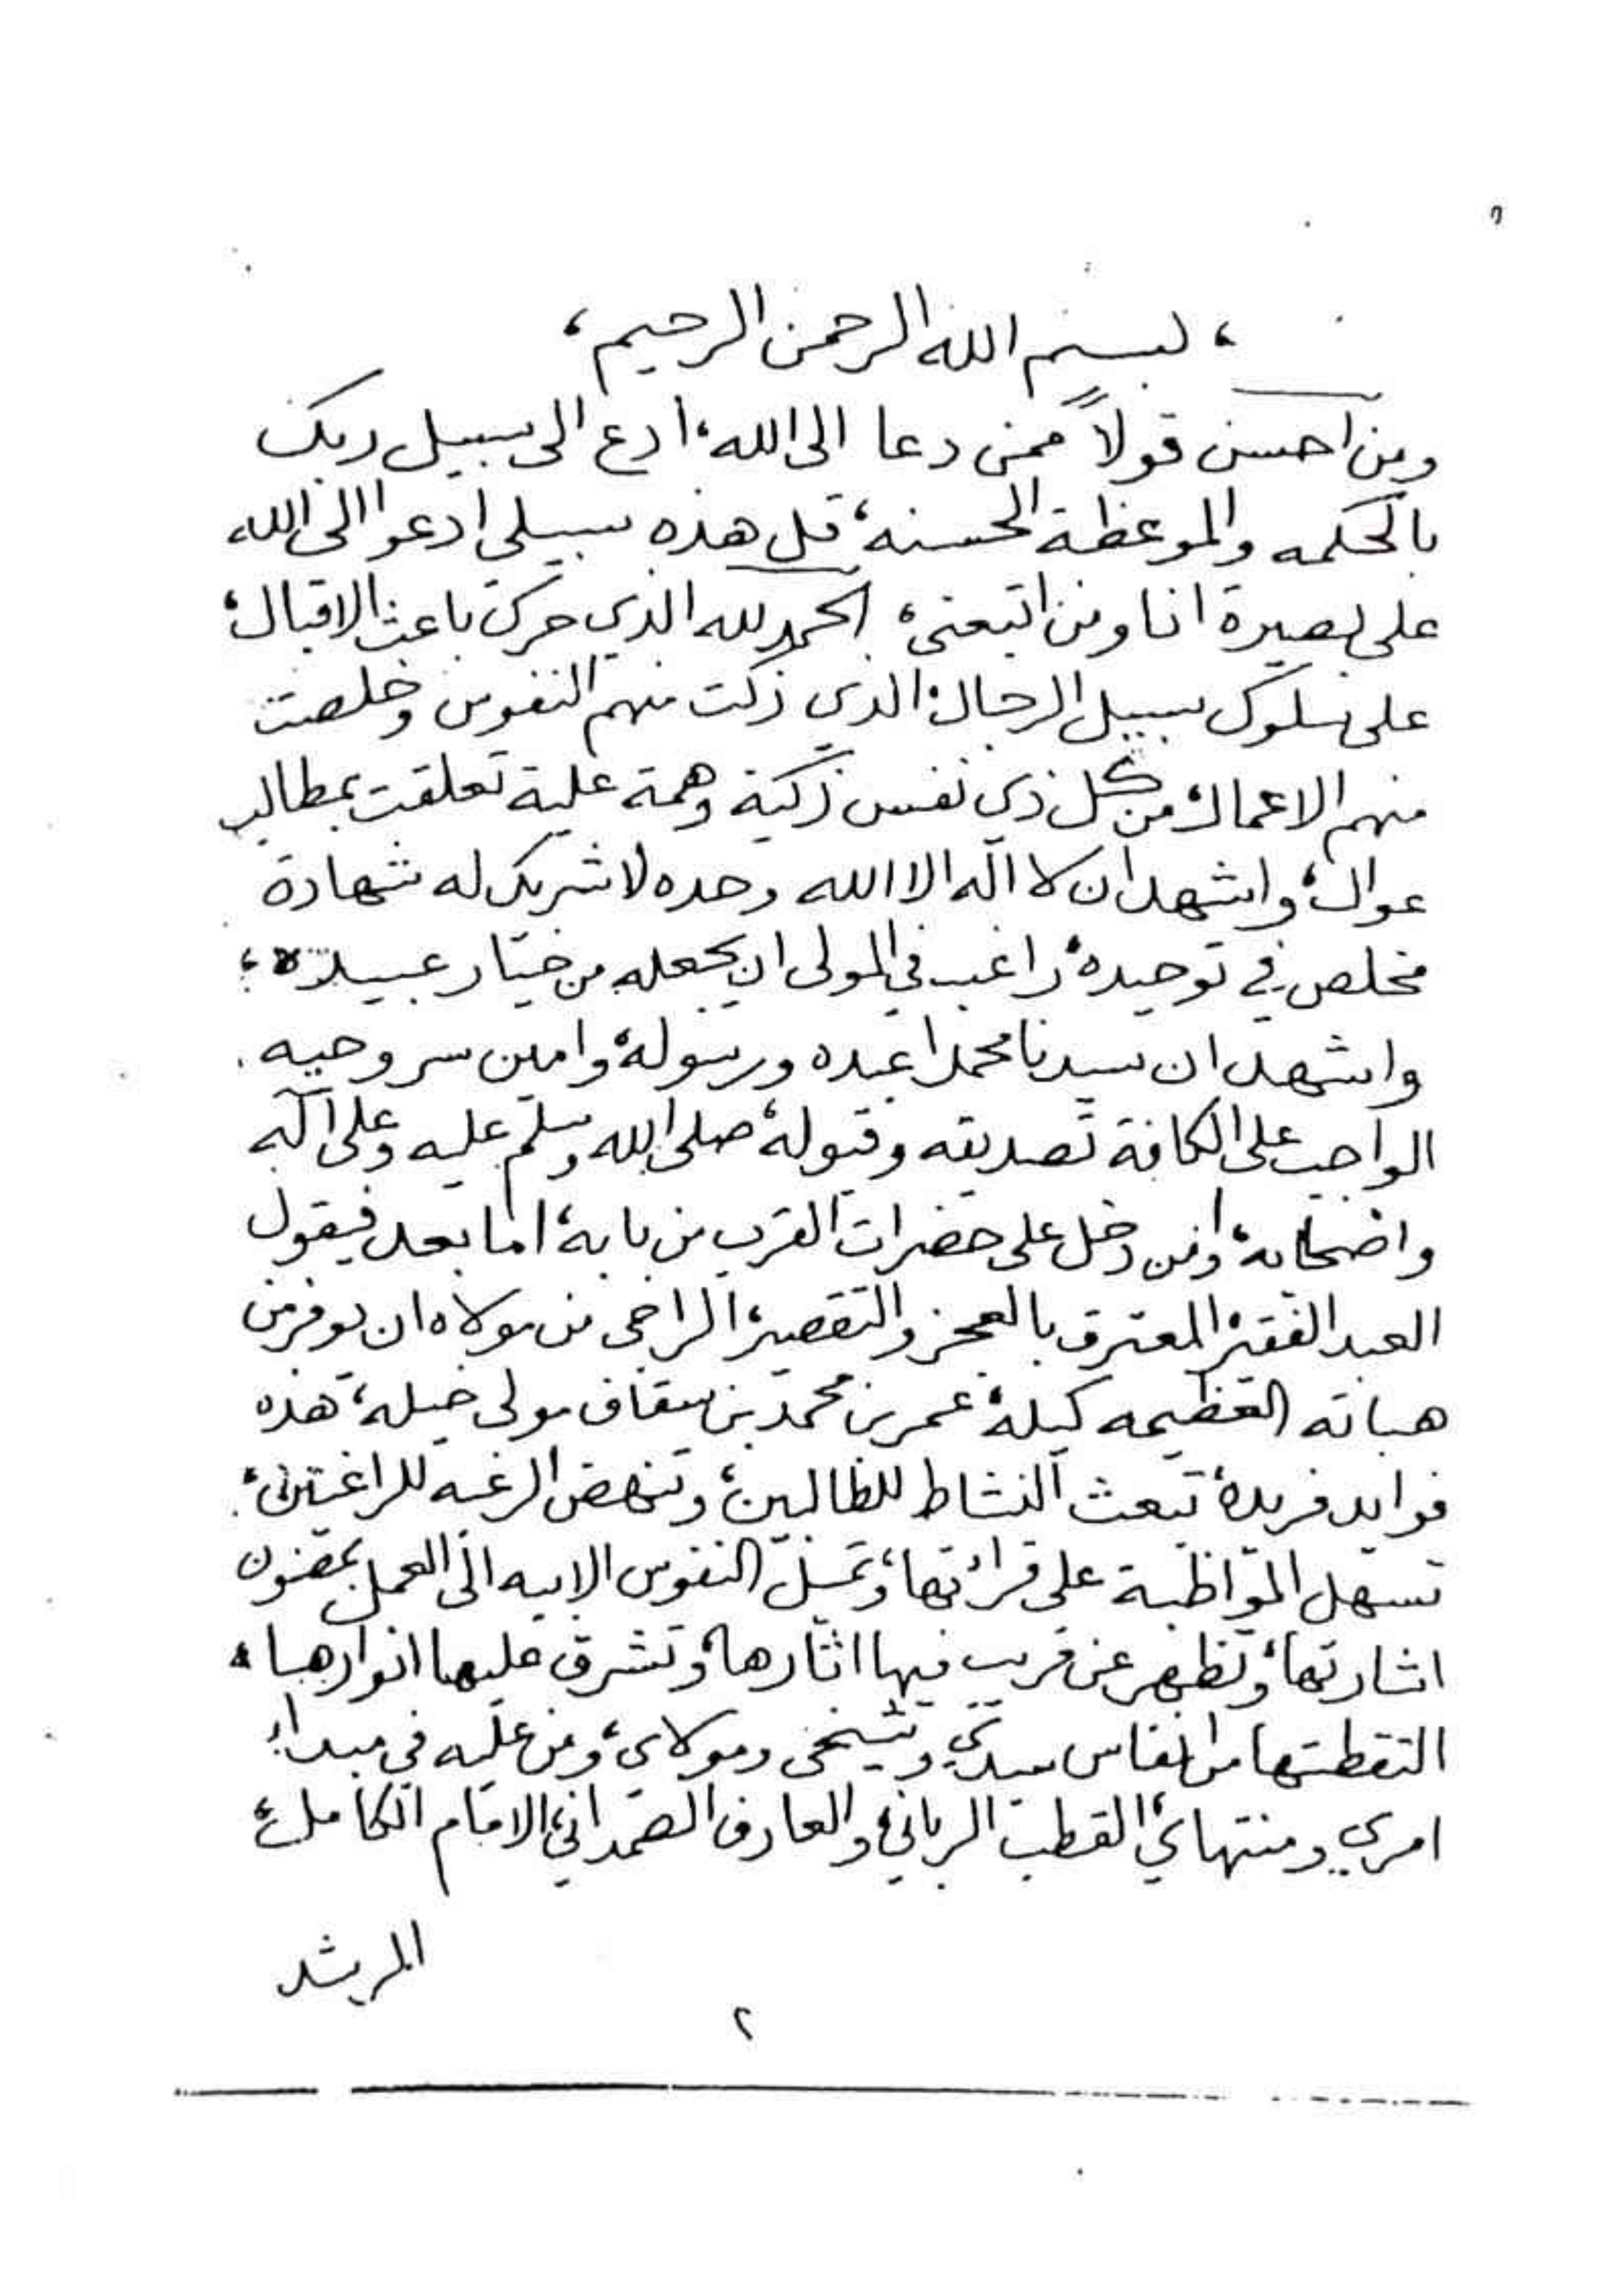 ، بسم الله الرحمن الرحيم ،
ومن احسن قولاً ممن دعا الى الله، ادع الى سبيل ربك
بالحكمه والموعظة الحسنه، قل هذه سبيلي ادعوا الى الله
على بصيرة انا ومن اتبعني، الحمد لله الذي حرك باعث الاقبال،
على سلوك سبيل الرجال، الذي زكت منهم النفوس وخلصت
منهم الاعمال، من كل ذي نفس زكية وهمة علية تعلقت بمطالب
عوال، واشهد ان لا اله الا الله وحده لا شريك له شهادة
مخلص في توحيده، راغب في المولى ان يجعله من خيار عبيده،
واشهد ان سيدنا محمدا عبده ورسوله، وامين سر وحيه
الواجب على الكافة تصديقه وقبوله، صلى الله وسلم عليه وعلى آله
واصحابه، ومن دخل على حضرات القرب من بابه، اما بعد فيقول
العبد الفقير المعترف بالعجز والتقصير، الراجي من مولاه ان يوفر من
هباته العظيمه كيله، عمر بن محمد بن سقاف مولى خيله، هذه
فوايد فريدة، تبعث النشاط للطالبين، وتنهض الرغبه للراغبين،
تسهل المواظبة على قرائتها، وتميل النفوس الابيه الى العمل بمضمون
اشارتها، وتظهر عن قريب فيها اثارها، وتشرق عليها انوارها،
التقطتها من انفاس سيدي وشيخي ومولاي، ومن عليه في مبدأ
امري ومنتهاي، القطب الرباني، والعارف الصمداني، الامام الكامل،
المرشد
٢